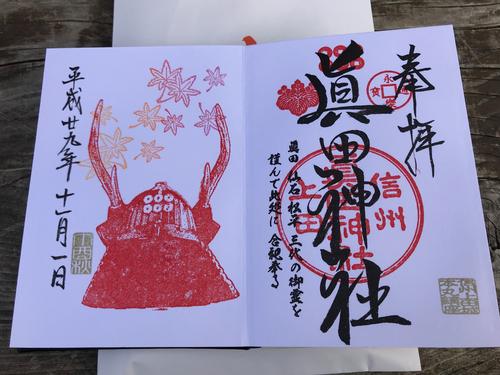 奉拝
眞田神社
信州
上田
眞田神社
永
寳
眞田 仙石 松平 三代の御霊を
謹んで此処に 合祀奉る
平成廿九年 十一月一日